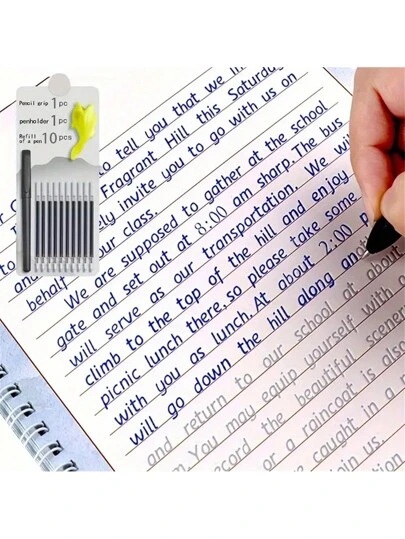 Pencil grip 1 pc
penholder 1 pc
Refill of a pen 10 pcs
to tell you that we
Fragrant Hill this Saturday
invite you to go with us on
behalf our class.
We are supposed to gather at the school
gate and set out at 8:00 am sharp. The bus
will serve as our transportation. We will
climb to the top of the hill and enjoy
picnic lunch there, so please take some
with you as lunch. At about 2:00 p
will go down the hill along
and return to our school at about
You may equip yourself with
record the beautiful scener
or a raincoat is also
caught in a
join us.